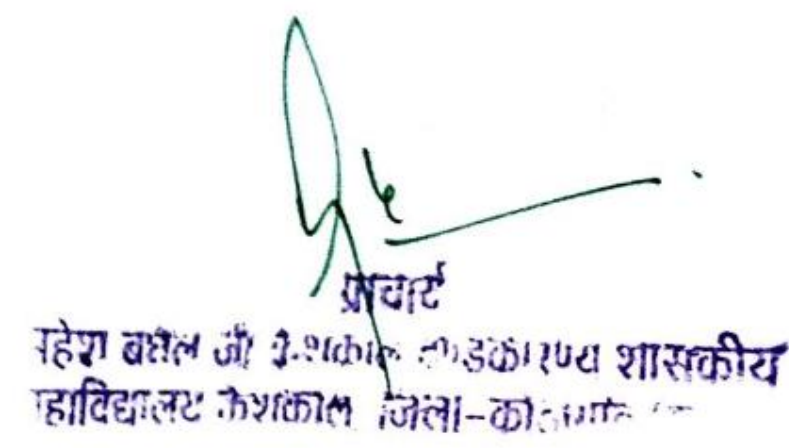 प्राचार्य
महेश बघेल जी केशकाल दण्डकारण्य शासकीय
महाविद्यालय केशकाल जिला-